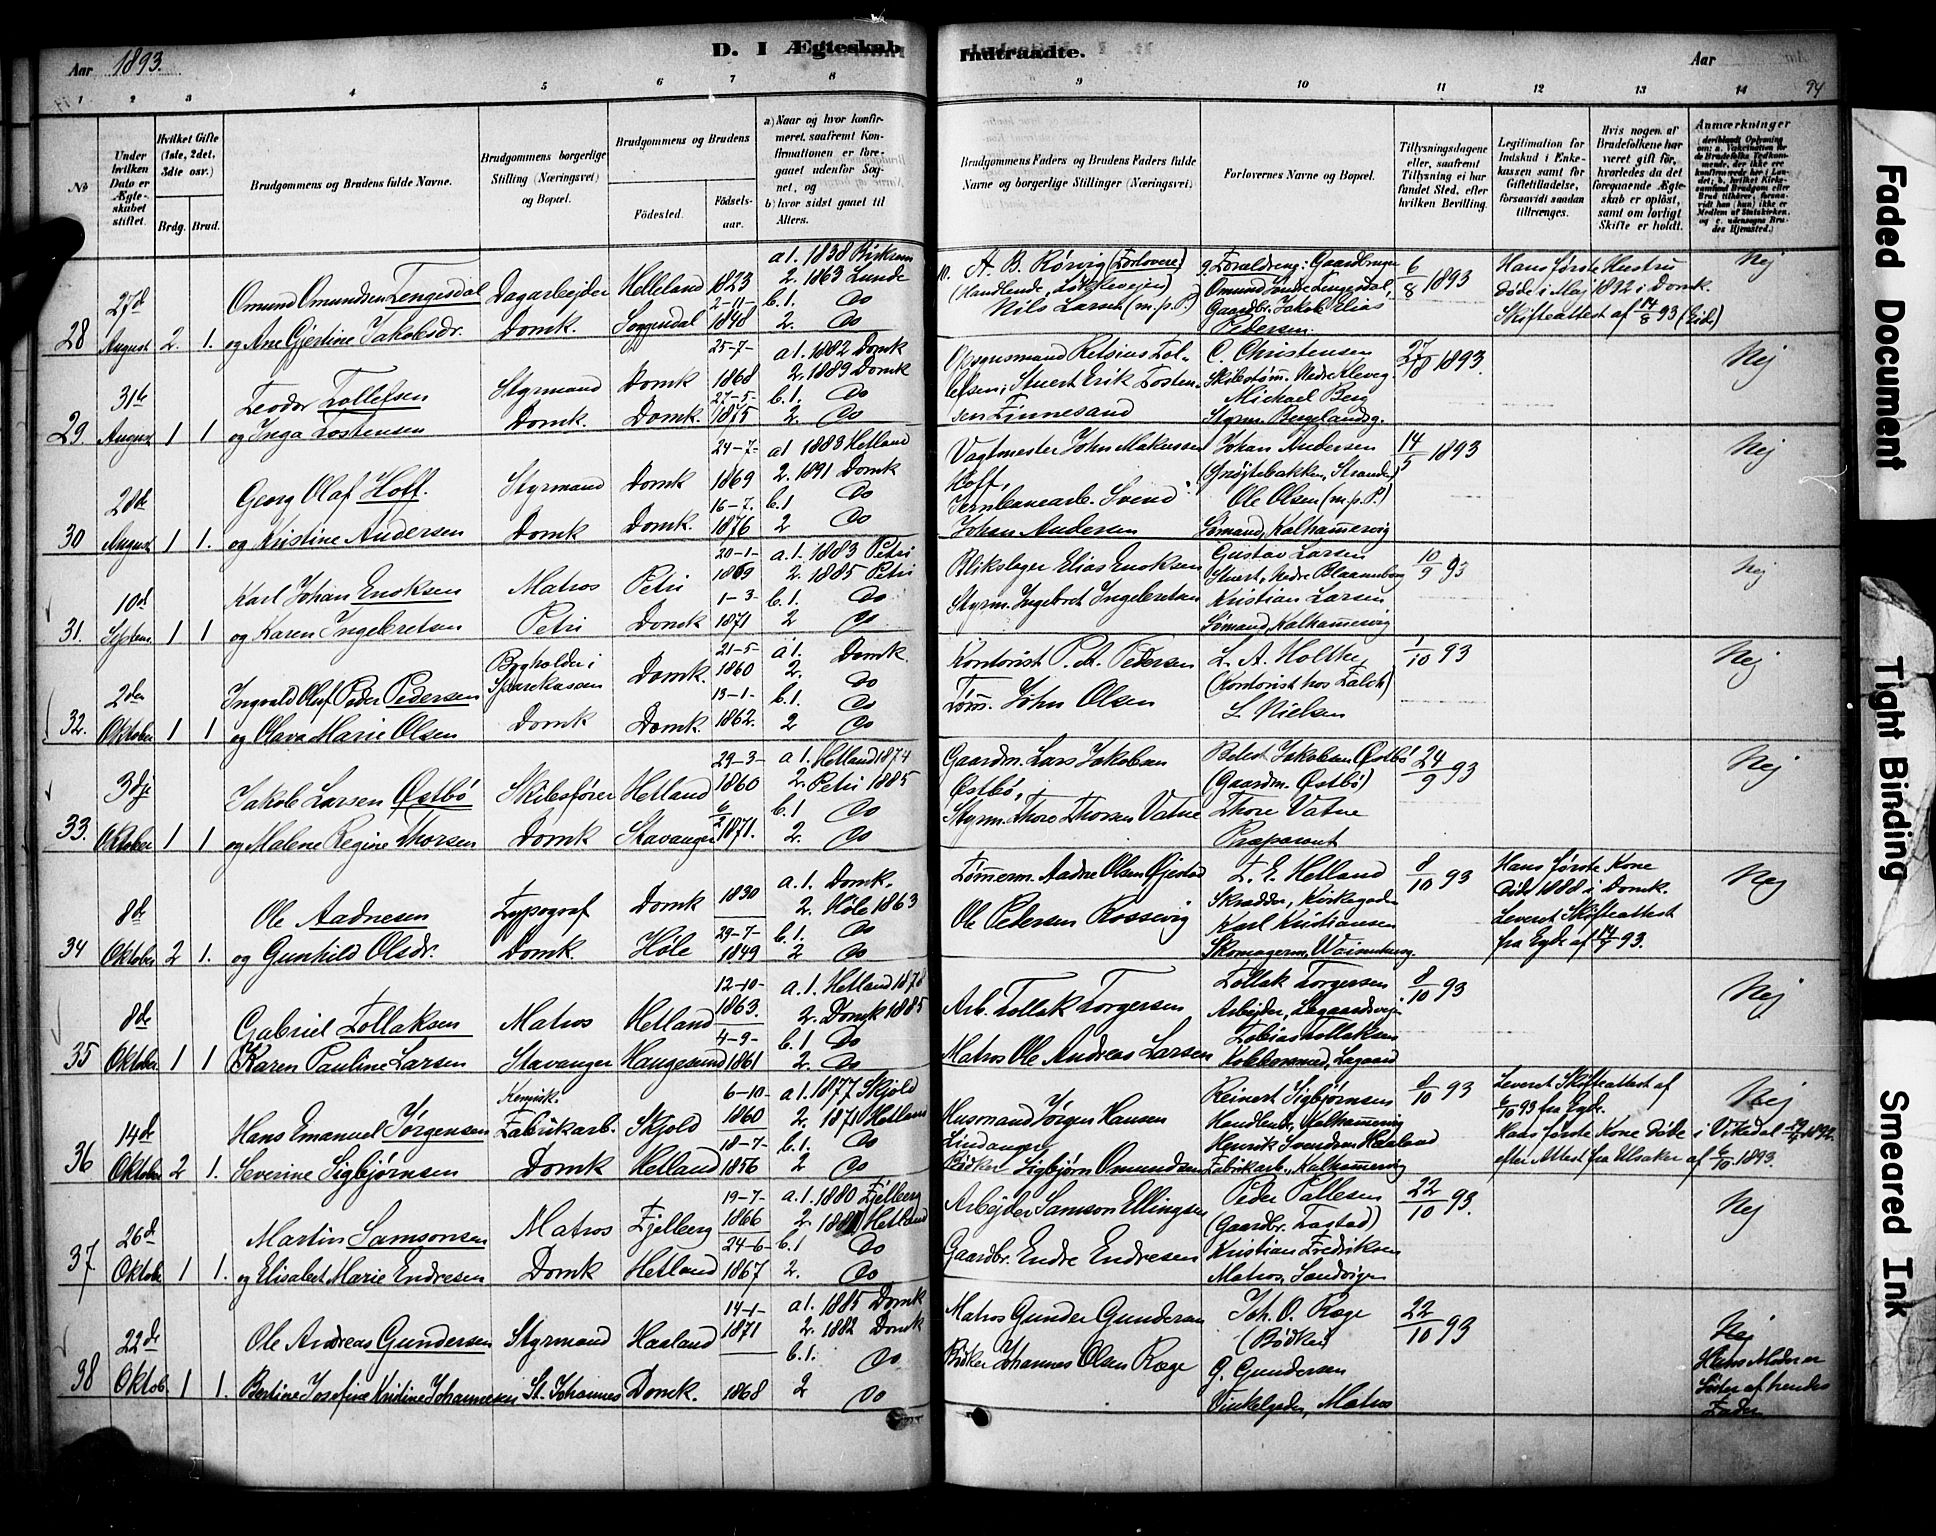 Aar 1893.
D. I Ægteskab
Indtraadte.
Aar
94
1 2 3 4 5 6 7 8
9 10 11 12 13 14
No
Under hvilken Dato er Ægteskabet stiftet.
Hvilket Gifte (1ste, 2det, 3dte osv.)
Brdg. Brud.
Brudgommens og Brudens fulde Navne.
Brudgommens borgerlige Stilling (Næringsvei) og Bopæl.
Brudgommens og Brudens
Födested.
Födselsaar.
a) Naar og hvor konfirmeret, saafremt Konfirmationen er foregaaet udenfor Sognet, og
b) hvor sidst gaaet til Alters.
Brudgommens Faders og Brudens Faders fulde Navne og borgerlige Stillinger (Næringsvei)
Forlovernes Navne og Bopæl.
Tillysningsdagene eller, saafremt Tillysning ei har fundet Sted, efter hvilken Bevilling.
Legitimation for Indskud i Enkekassen samt for Giftetilladelse, forsaavidt saadan tiltrænges.
Hvis nogen af Brudefolkene har været gift för, hvorledes da det foregaaende Ægteskab er oplöst, samt om lovligt Skifte er holdt.
Anmærkninger
28 27de August 2. 1.
Omund Omundsen Tengesdal
og Ane Gjertine Jakobsdr.
Dagarbejder
Domk.
Helleland
Soggendal
1823
2-11-
1848
a 1. 1838 Birkrem
2. 1863 Lunde
b. 1. Do
2. Do
10. A. B. Rørvig (Forlovere)
Nils Larsen (m.p.P.)
9. Forældrene: Gaardbruger
Omund Tengesdal,
Gaardbr. Jakob Elias
Pedersen.
6/8 1893
Hans første Hustru
døde i Maj 1892 i Domk.
Skifteattest af 14/8 93 (Eide)
Nej
29 31te August 1 1
Teodor Tollefsen
og Inga Tostensen
Styrmand
Domk.
Domk
Domk.
25-7-
1868
27-5-
1875
a 1. 1882 Domk
2. 1889 Domk
b. 1. Do
2. Do
Opsynsmand Retsius Tollefsen; Stuert Erik Tostensen Finnesand
C. Christensen
Skibstøm. Nedre Kleveg.
Michael Berg
Styrm. Bergelandsg.
27/8 1893.
Nej
30 28de August 1 1.
Georg Olaf Hoff.
og Kristine Andersen
Styrmand
Domk
Domk
Domk.
24-7-
1869
16-7.
1876
a 1 1883 Hetland
2. 1891 Domk
b. 1 Do
2 Do
Vagtmester John Makussen
Hoff,
Jernbanearb. Svend
Johan Andersen
Johan Andersen
Ole Olsen (m.p.P.)
Sømand, Kalhammervig
14/5 1893
Nej
31. 10de Septem. 1 1
Karl Johan Enoksen
og Karen Ingebretsen
Matros
Petri
Petri
Domk
20-1-
1869
1-3-
1871
a. 1. 1883 Petri
2. 1885 Petri
b. 1. Do
2 Do
Blikslager Elias Enoksen
Styrm. Ingebret Ingebretsen
Gustav Larsen
Stuert, Nedre Blaasenborg
Kristian Larsen
Sømand, Kalhammervig
10/9 93
Nej
32. 2den Oktober 1 1
Ingvald Oluf Peder Pedersen
og Olava Marie Olsen
Bogholder i
Sparekassen
Domk
Domk.
Domk.
21-5-
1860
13-1-
1862.
a 1. Domk.
2. Do
b. 1. Do
2 Do
Kontorist P. A. Pedersen
Tøm. John Olsen
L. A. Holthe
(Kontorist hos Falck)
L Nielsen
1/10 93
Nej
33. 3dje Oktober 1 1
Jakob Larsen Østbø
og Malene Regine Thorsen
Skibsfører
Domk
Hetland
Stavanger
29-3-
1860
6/2
1871.
a 1. Hetland 1874
2. Petri 1885
b. 1 Do
2. Do
Gaardm. Lars Jakobsen
Østbø,
Styrm. Thore Thorsen Vatne
Berent Jakobsen Østbø
(Gaardm. Østbø)
Thore Vatne
Præparant
24/9 93
Nej
34 8de Oktober 2 1.
Ole Aadnesen
og Gunhild Olsdr.
Typograf
Domk.
Domk
Høle
1830
29-7-
1849
a. 1. Domk.
2. Høle 1863
b. 1. Do
2 Do
Tømerm. Aadne Olsen Øjestad
Ole Pedersen Rossevig
T. E. Hetland
Skrædder, Kirkegaden
Karl Kristiansen
Skomagerm.
8/10 93
Hans første Kone
død 1888 i Domk.
Leveret Skifteattest
fra Byf. af 14/7 93.
Nej
35 8de Oktober 1 1
Gabriel Tollaksen
Karen Pauline Larsen
Matros
Stavanger
Hetland
Haugesund
12-10-
1863.
4-9-
1861
a. 1. Hetland 1878
2. Domk 1885
b. 1 Do
2. Do
Arb. Tollak Torgersen
Matros Ole Andreas Larsen
Tollak Torgersen
Arbejder, Lagaardsvejen
Tobias Tollaksen
Lagaard
8/10 93
Nej
36 14de Oktober 2 1.
Hans Emanuel Jørgensen
Severine Sigbjørnsen
Fabrikarb.
Domk
Skjold
Hetland
6-10-
1860
18-7-
1856
a 1. 1877 Skjold
2. 1871 Hetland
b. 1. Do
2 Do
Husmand Jørgen Hansen
Lindanger
Bødker Sigbjørn Omundsen
Reinert Sigbjørnsen
Handlende, Kalhammervig
Henrik Svendsen Haaland
Fabrikarb., Kalhammervig
8/10 93
Leveret Skifteattest af
6/10 93 fra Byf.
Hans første Kone døde i Vikedal 1892.
efter Attest fra Ulsaker af 6/10 1893.
Nej
37 26de Oktober 1 1.
Martin Samsonsen
og Elisabet Marie Endresen
Matros
Domk
Fjelberg
Hetland
19-7-
1866
24-6-
1867
a. 1. 1880 Fjelberg
2. 1881 Hetland
b. 1 Do
2. Do
Arbejder Samson Ellingsen
Gaardbr. Endre Endresen
Peder Pallesen
(Gaardbr. Fagstad)
Kristian Fredriksen
Matros, Sandvigen
22/10 93.
Nej
38 22de Oktob. 1 1.
Ole Andreas Gundersen
Bertine Josefine Kristine Johannesen
Styrmand
St. Johannes
Haaland
Domk.
14-1-
1871
1868
a 1. 1885 Domk
2. 1882 Domk
b. 1. Do
2 Do
Matros Gunder Gundersen
Bødker Johannes Olsen Ræge
Joh. O. Ræge
(Bødker)
G. Gundersen
Vinkelgaden, Matros
22/10 93
Nej
Hans Moder er
Søster af hendes
Fader
Faded Document
Tight Binding
Smeared Ink